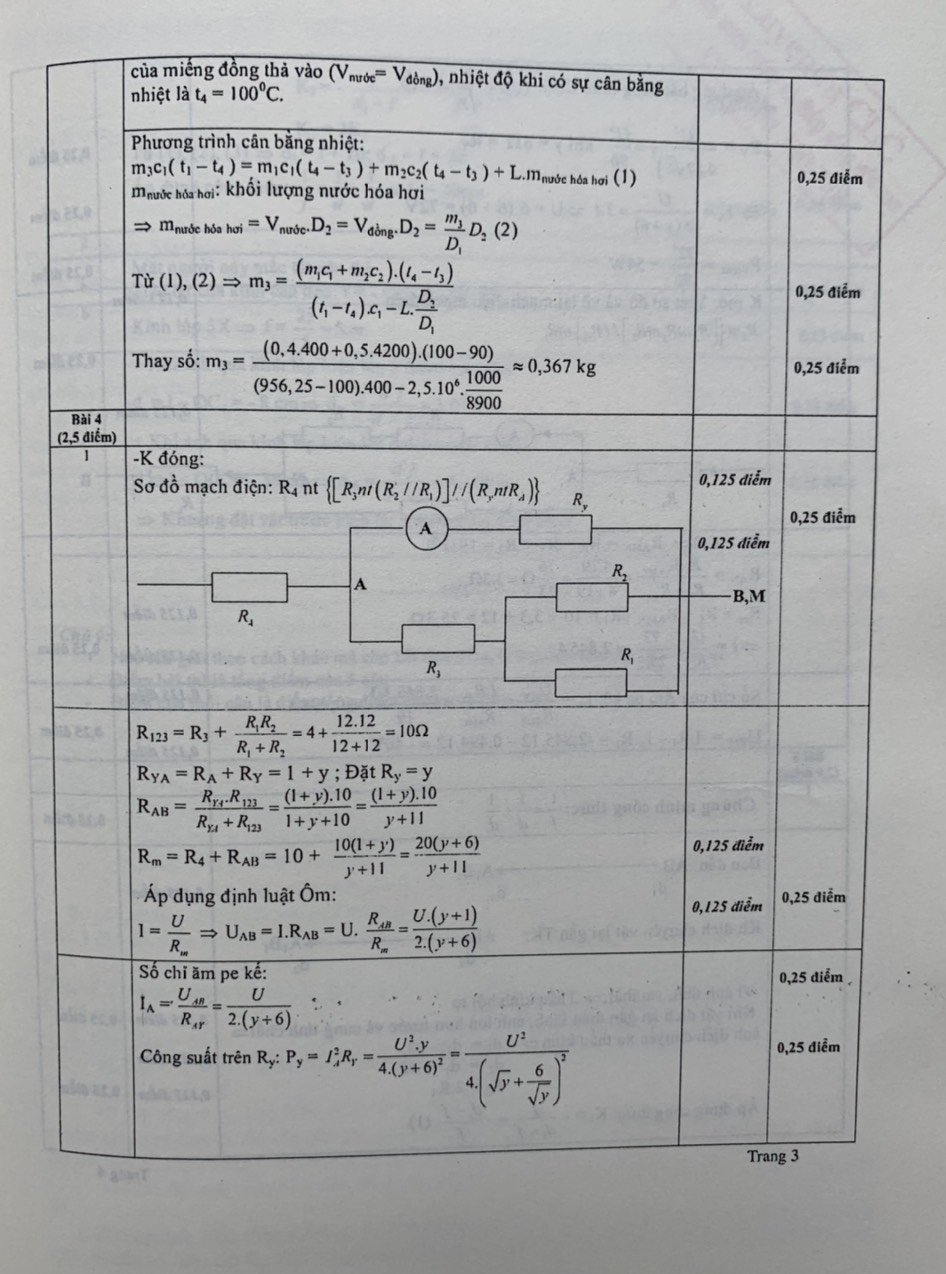 của miếng đồng thả vào (Vnước= Vđồng), nhiệt độ khi có sự cân bằng
nhiệt là t₄ = 100⁰C.
Phương trình cân bằng nhiệt:
m₃c₁( t₁ – t₄ ) = m₁c₁( t₄ – t₃ ) + m₂c₂( t₄ – t₃ ) + L.mnước hóa hơi (1) 0,25 điểm
mnước hóa hơi: khối lượng nước hóa hơi
⇒ mnước hóa hơi = Vnước.D₂ = Vđồng.D₂ = m₃/D₁ D₂ (2)
Từ (1), (2) ⇒ m₃ = (m₁c₁ + m₂c₂).(t₄ – t₃) / ((t₁ – t₄).c₁ – L.D₂/D₁) 0,25 điểm
Thay số: m₃ = (0,4.400+0,5.4200).(100–90) / ((956,25–100).400–2,5.10⁶.1000/8900) ≈ 0,367 kg 0,25 điểm
Bài 4
(2,5 điểm)
1 -K đóng:
Sơ đồ mạch điện: R₄ nt {[R₃nt(R₂//R₁)]//(RyntRA)} 0,125 điểm
0,25 điểm
A Ry 0,125 điểm
R₂
A
B,M
R₄
R₃ R₁
R₁₂₃ = R₃ + R₁R₂/(R₁ + R₂) = 4 + 12.12/(12+12) = 10Ω
RYA = RA + RY = 1 + y ; Đặt Ry = y
RAB = RYA.R₁₂₃/(RYA + R₁₂₃) = (1+y).10/(1+y+10) = (1+y).10/(y+11)
Rm = R₄ + RAB = 10 + 10(1+y)/(y+11) = 20(y+6)/(y+11) 0,125 điểm
Áp dụng định luật Ôm:
I = U/Rm ⇒ UAB = I.RAB = U. RAB/Rm = U.(y+1)/(2.(y+6)) 0,125 điểm 0,25 điểm
Số chỉ ăm pe kế: 0,25 điểm
IA = UAB/RAY = U/(2.(y+6))
Công suất trên Ry: Py = I²A RY = U².y/(4.(y+6)²) = U²/(4.(√y + 6/√y)²) 0,25 điểm
Trang 3